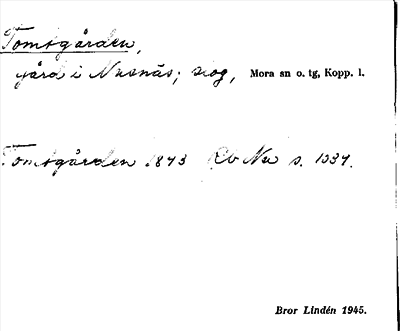 Tomtgården,
gård i Nusnäs; skog, Mora sn o. tg, Kopp. l.
Tomtgården 1843 Rb Nu s. 1337.
Bror Lindén 1945.